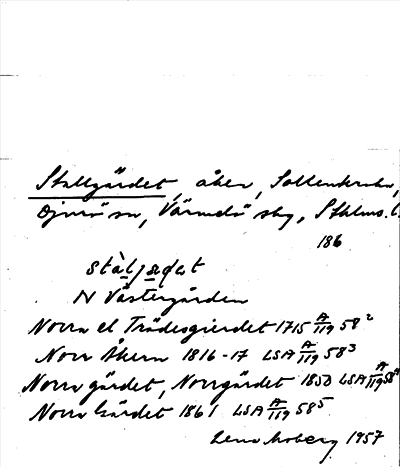 Stallgärdet, åker, Sollenkroka,
Djurö sn, Värmdö sby, Sthlms. l.
186
stàl)ædet
N Västergården
Norra el Trädesgierdet 1715 A/119 58²
Norr Åkern 1816-17 LSA A/119 58³
Norra gärdet, Norrgärdet 1850 LSA A/119 58⁴
Norra Gärdet 1861 LSA A/119 58⁵
Lena Moberg 1957